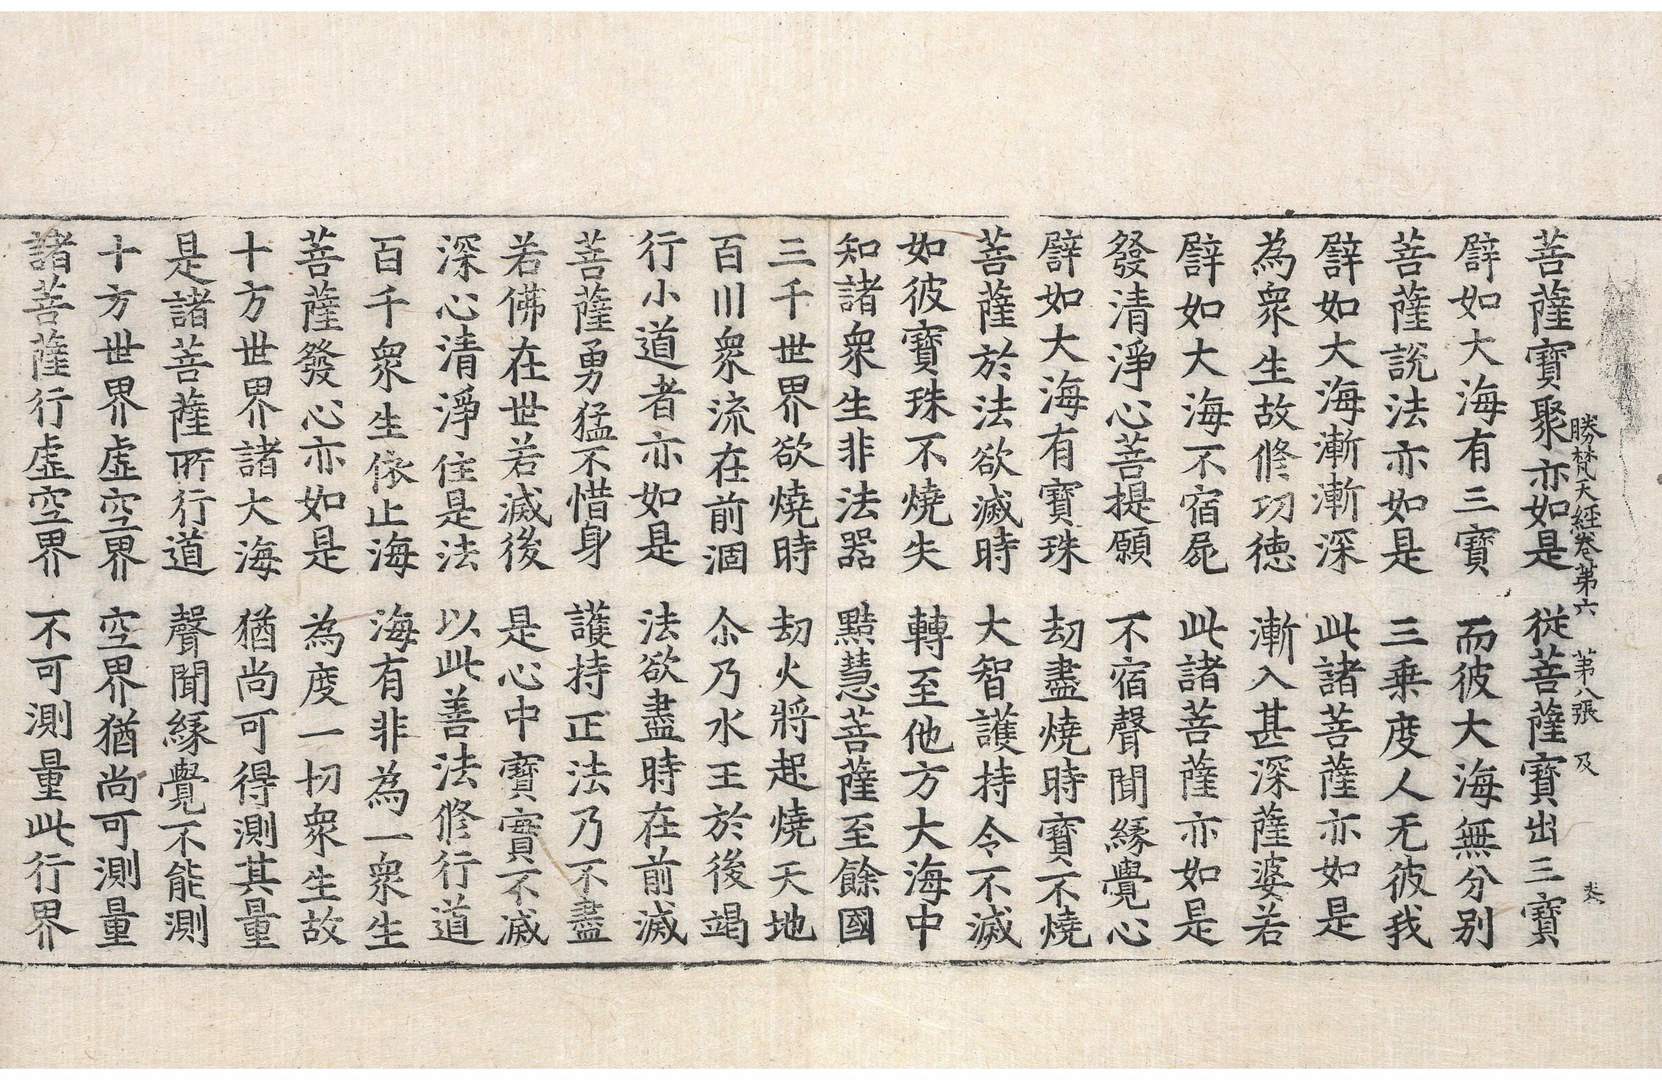 勝梵天經卷第六　第八張　及
菩薩寶聚亦如是　從菩薩寶出三寶
譬如大海有三寶　而彼大海無分別
菩薩說法亦如是　三乗度人无彼我
譬如大海漸漸深　此諸菩薩亦如是
為衆生故修功德　漸入甚深薩婆若
譬如大海不宿屍　此諸菩薩亦如是
發清淨心菩提願　不宿聲聞緣覺心
譬如大海有寶珠　劫盡燒時寶不燒
菩薩於法欲滅時　大智護持令不滅
如彼寶珠不燒失　轉至他方大海中
知諸衆生非法器　黠慧菩薩至餘國
三千世界欲燒時　劫火將起燒天地
百川衆流在前涸　尒乃水王於後竭
行小道者亦如是　法欲盡時在前滅
菩薩勇猛不惜身　護持正法乃不盡
若佛在世若滅後　是心中寶實不滅
深心清淨住是法　以此善法修行道
百千衆生依止海　海有非為一衆生
菩薩發心亦如是　為度一切衆生故
十方世界諸大海　猶尚可得測其量
是諸菩薩所行道　聲聞緣覺不能測
十方世界虛空界　空界猶尚可測量
諸菩薩行虛空界　不可測量此行界